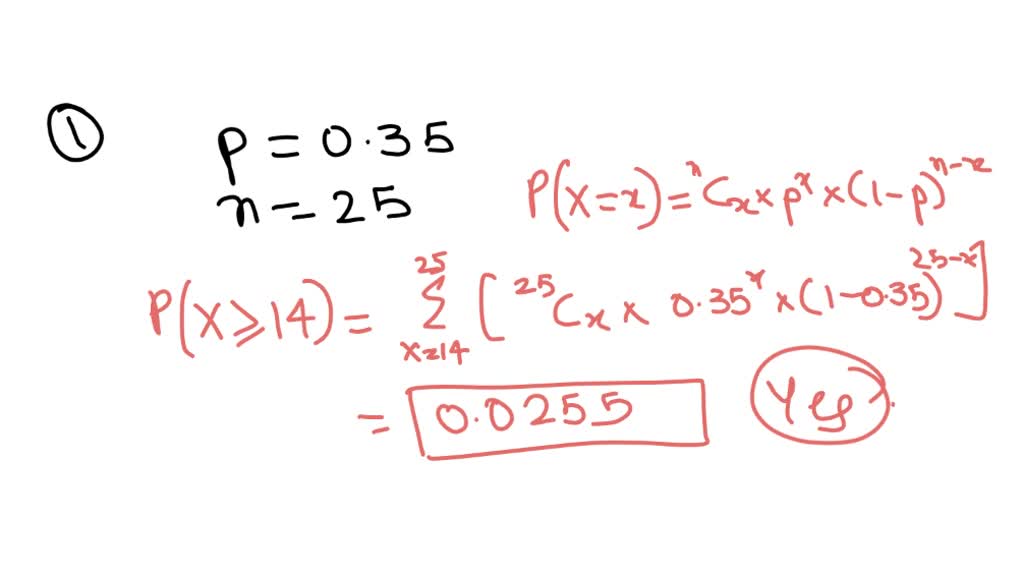 ① p = 0.35
n = 25
P(X=x) = ⁿCₓ × pˣ × (1-p)ⁿ⁻ˣ
P(X ≥ 14) = ∑ₓ₌₁₄²⁵ [ ²⁵Cₓ × 0.35ˣ × (1-0.35)²⁵⁻ˣ ]
= 0.0255 Yes